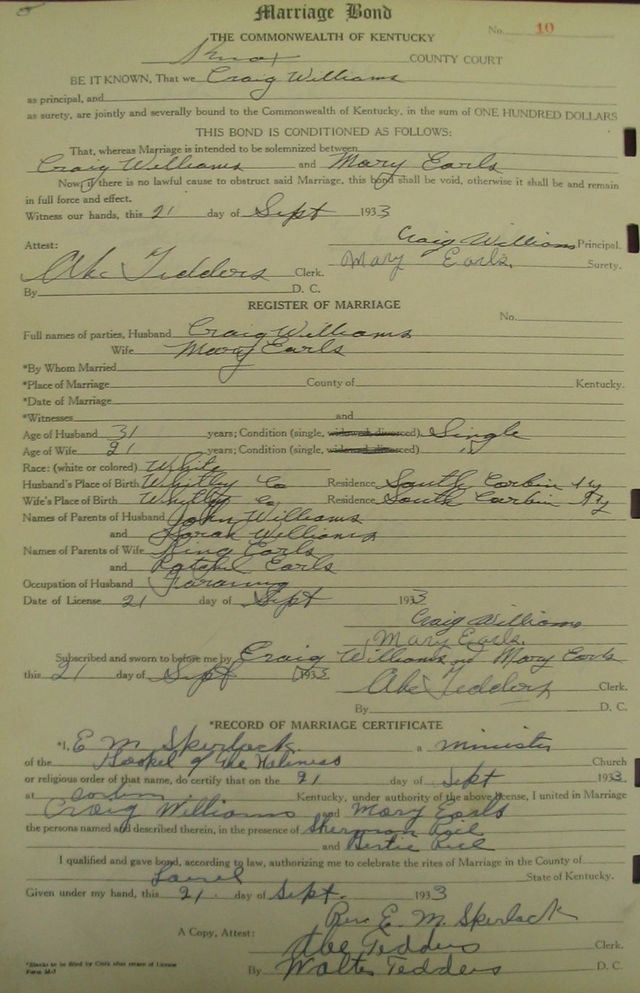 Marriage Bond
No. 10
THE COMMONWEALTH OF KENTUCKY
Knox COUNTY COURT
BE IT KNOWN, That we Craig Williams
as principal, and
as surety, are jointly and severally bound to the Commonwealth of Kentucky, in the sum of ONE HUNDRED DOLLARS
THIS BOND IS CONDITIONED AS FOLLOWS:
That, whereas Marriage is intended to be solemnized between
Craig Williams and Mary Earls
Now, if there is no lawful cause to obstruct said Marriage, this bond shall be void, otherwise it shall be and remain
in full force and effect.
Witness our hands, this 21 day of Sept 1933
Craig Williams Principal.
Attest: Mary Earls. Surety.
Abe Tedders Clerk.
By D. C.
REGISTER OF MARRIAGE
No.
Full names of parties, Husband Craig Williams
Wife Mary Earls
*By Whom Married
*Place of Marriage County of Kentucky.
*Date of Marriage
*Witnesses and
Age of Husband 31 years; Condition (single, widowed, divorced). Single
Age of Wife 21 years; Condition (single, widowed, divorced) "
Race: (white or colored) White
Husband's Place of Birth Whitley Co Residence South Corbin Ky
Wife's Place of Birth Whitley Co Residence South Corbin Ky
Names of Parents of Husband John Williams
and Sarah Williams
Names of Parents of Wife King Earls
and Earls
Occupation of Husband Farming
Date of License 21 day of Sept 1933
Craig Williams
Mary Earls.
Subscribed and sworn to before me by Craig Williams Mary Earls
this 21 day of Sept 1933
Abe Tedders Clerk.
By D. C.
*RECORD OF MARRIAGE CERTIFICATE
*I, E M. Skerlock a minister
of the of the Holiness Church
or religious order of that name, do certify that on the 21 day of Sept 1933
at Corbin Kentucky, under authority of the above license, I united in Marriage
Craig Williams and Mary Earls
the persons named and described therein, in the presence of Sherman
and Bertie
I qualified and gave bond, according to law, authorizing me to celebrate the rites of Marriage in the County of
Laurel State of Kentucky.
Given under my hand, this 21. day of Sept. 1933
Rev. E. M. Skerlock
A Copy, Attest: Abe Tedders Clerk.
By Walter Tedders D. C.
*Blanks to be filed by Clerk after return of License
Form M-1